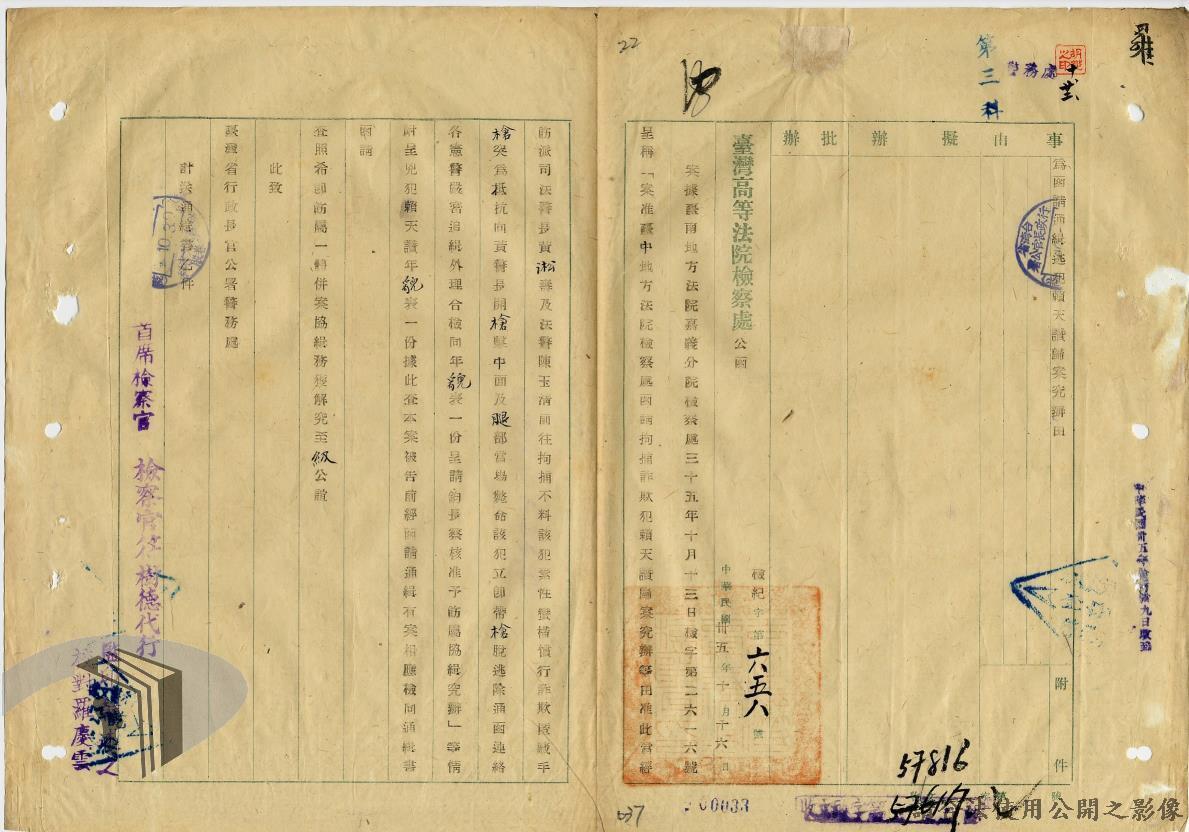 羅
十 廿六
警務處
第三科
22
事由
擬辦
批辦
為函請通緝逃犯賴天讚歸案究辦由
附件
臺灣高等法院檢察處公函
檢紀字第六五八號
中華民國卅五年十月十六日
案據臺南地方法院嘉義分院檢察處三十五年十月十三日檢字第二六一六號
呈稱「案准臺中地方法院檢察處函請拘捕詐欺犯賴天讚歸案究辦等由准此當經
飭派司法警長黃淞壽及法警陳玉清前往拘捕不料該犯素性蠻橫慣行詐欺
槍突為抵抗向黃警長開槍擊中面及腿部當場斃命該犯立即帶槍脫逃除通函連絡
各憲警嚴密追緝外理合檢同年貌表一份呈請鈞長察核准予飭屬協緝究辦」等情
附呈兇犯賴天讚年貌表一份據此查本案被告前經函請通緝有案相應檢同通緝書
函請
查照希即飭屬一體併案協緝務獲解究至級公誼
此致
臺灣省行政長官公署警務處
計送通緝書乙件
首席檢察官
檢察官 樹德代行
校對羅慶雲
57816
00033
037
用公開之影像